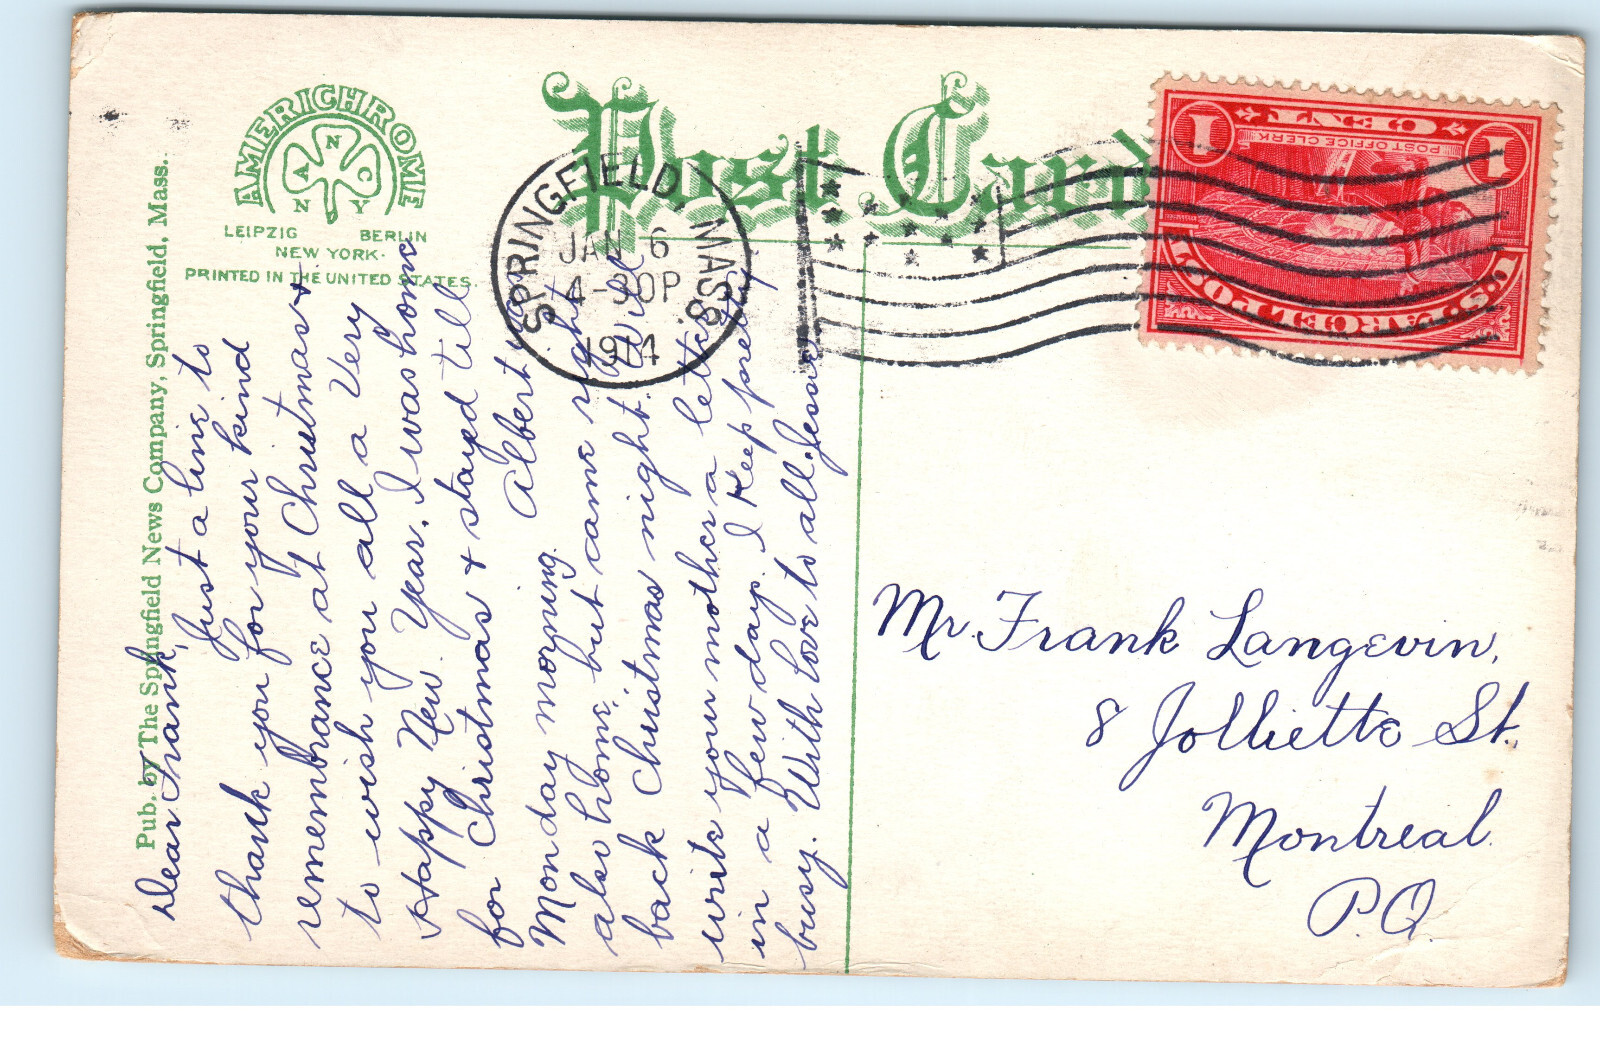 Post Card
AMERICHROME
A N C
N Y
LEIPZIG BERLIN
NEW YORK.
PRINTED IN THE UNITED STATES.
Pub. by The Springfield News Company, Springfield, Mass.
SPRINGFIELD, MASS.
JAN 6
4-30P
1914
U.S. PARCEL POST
POST OFFICE CLERK
1 CENT 1
Dear Frank, Just a line to
thank you for your kind
remembrance at Christmas &
to wish you all a Very
Happy New Year. I was home
for Christmas & stayed till
Monday morning. Albert was
also home, but came right
back Christmas night. Will
write your mother a letter
in a few days. I keep pretty
busy. With love to all. Jessie
Mr. Frank Langevin,
8 Jolliette St.
Montreal
P.Q.